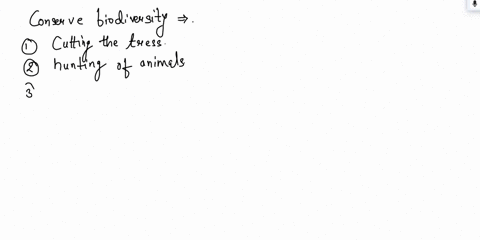 Conserve biodiversity ⇒.
① Cutting the tress.
② hunting of animals
3